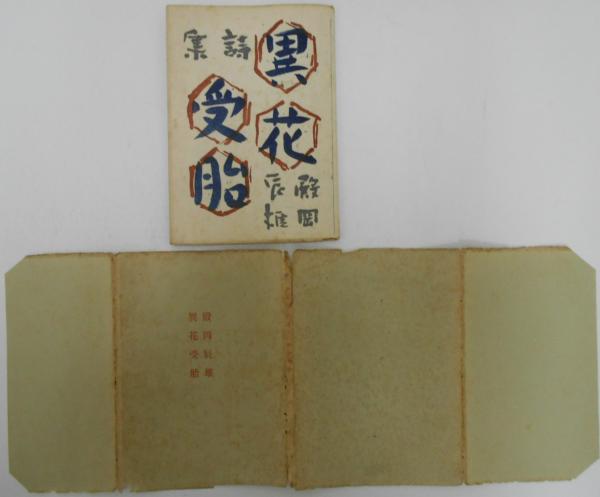 詩集
異花
受胎
殿岡
辰雄
殿岡辰雄
異花受胎